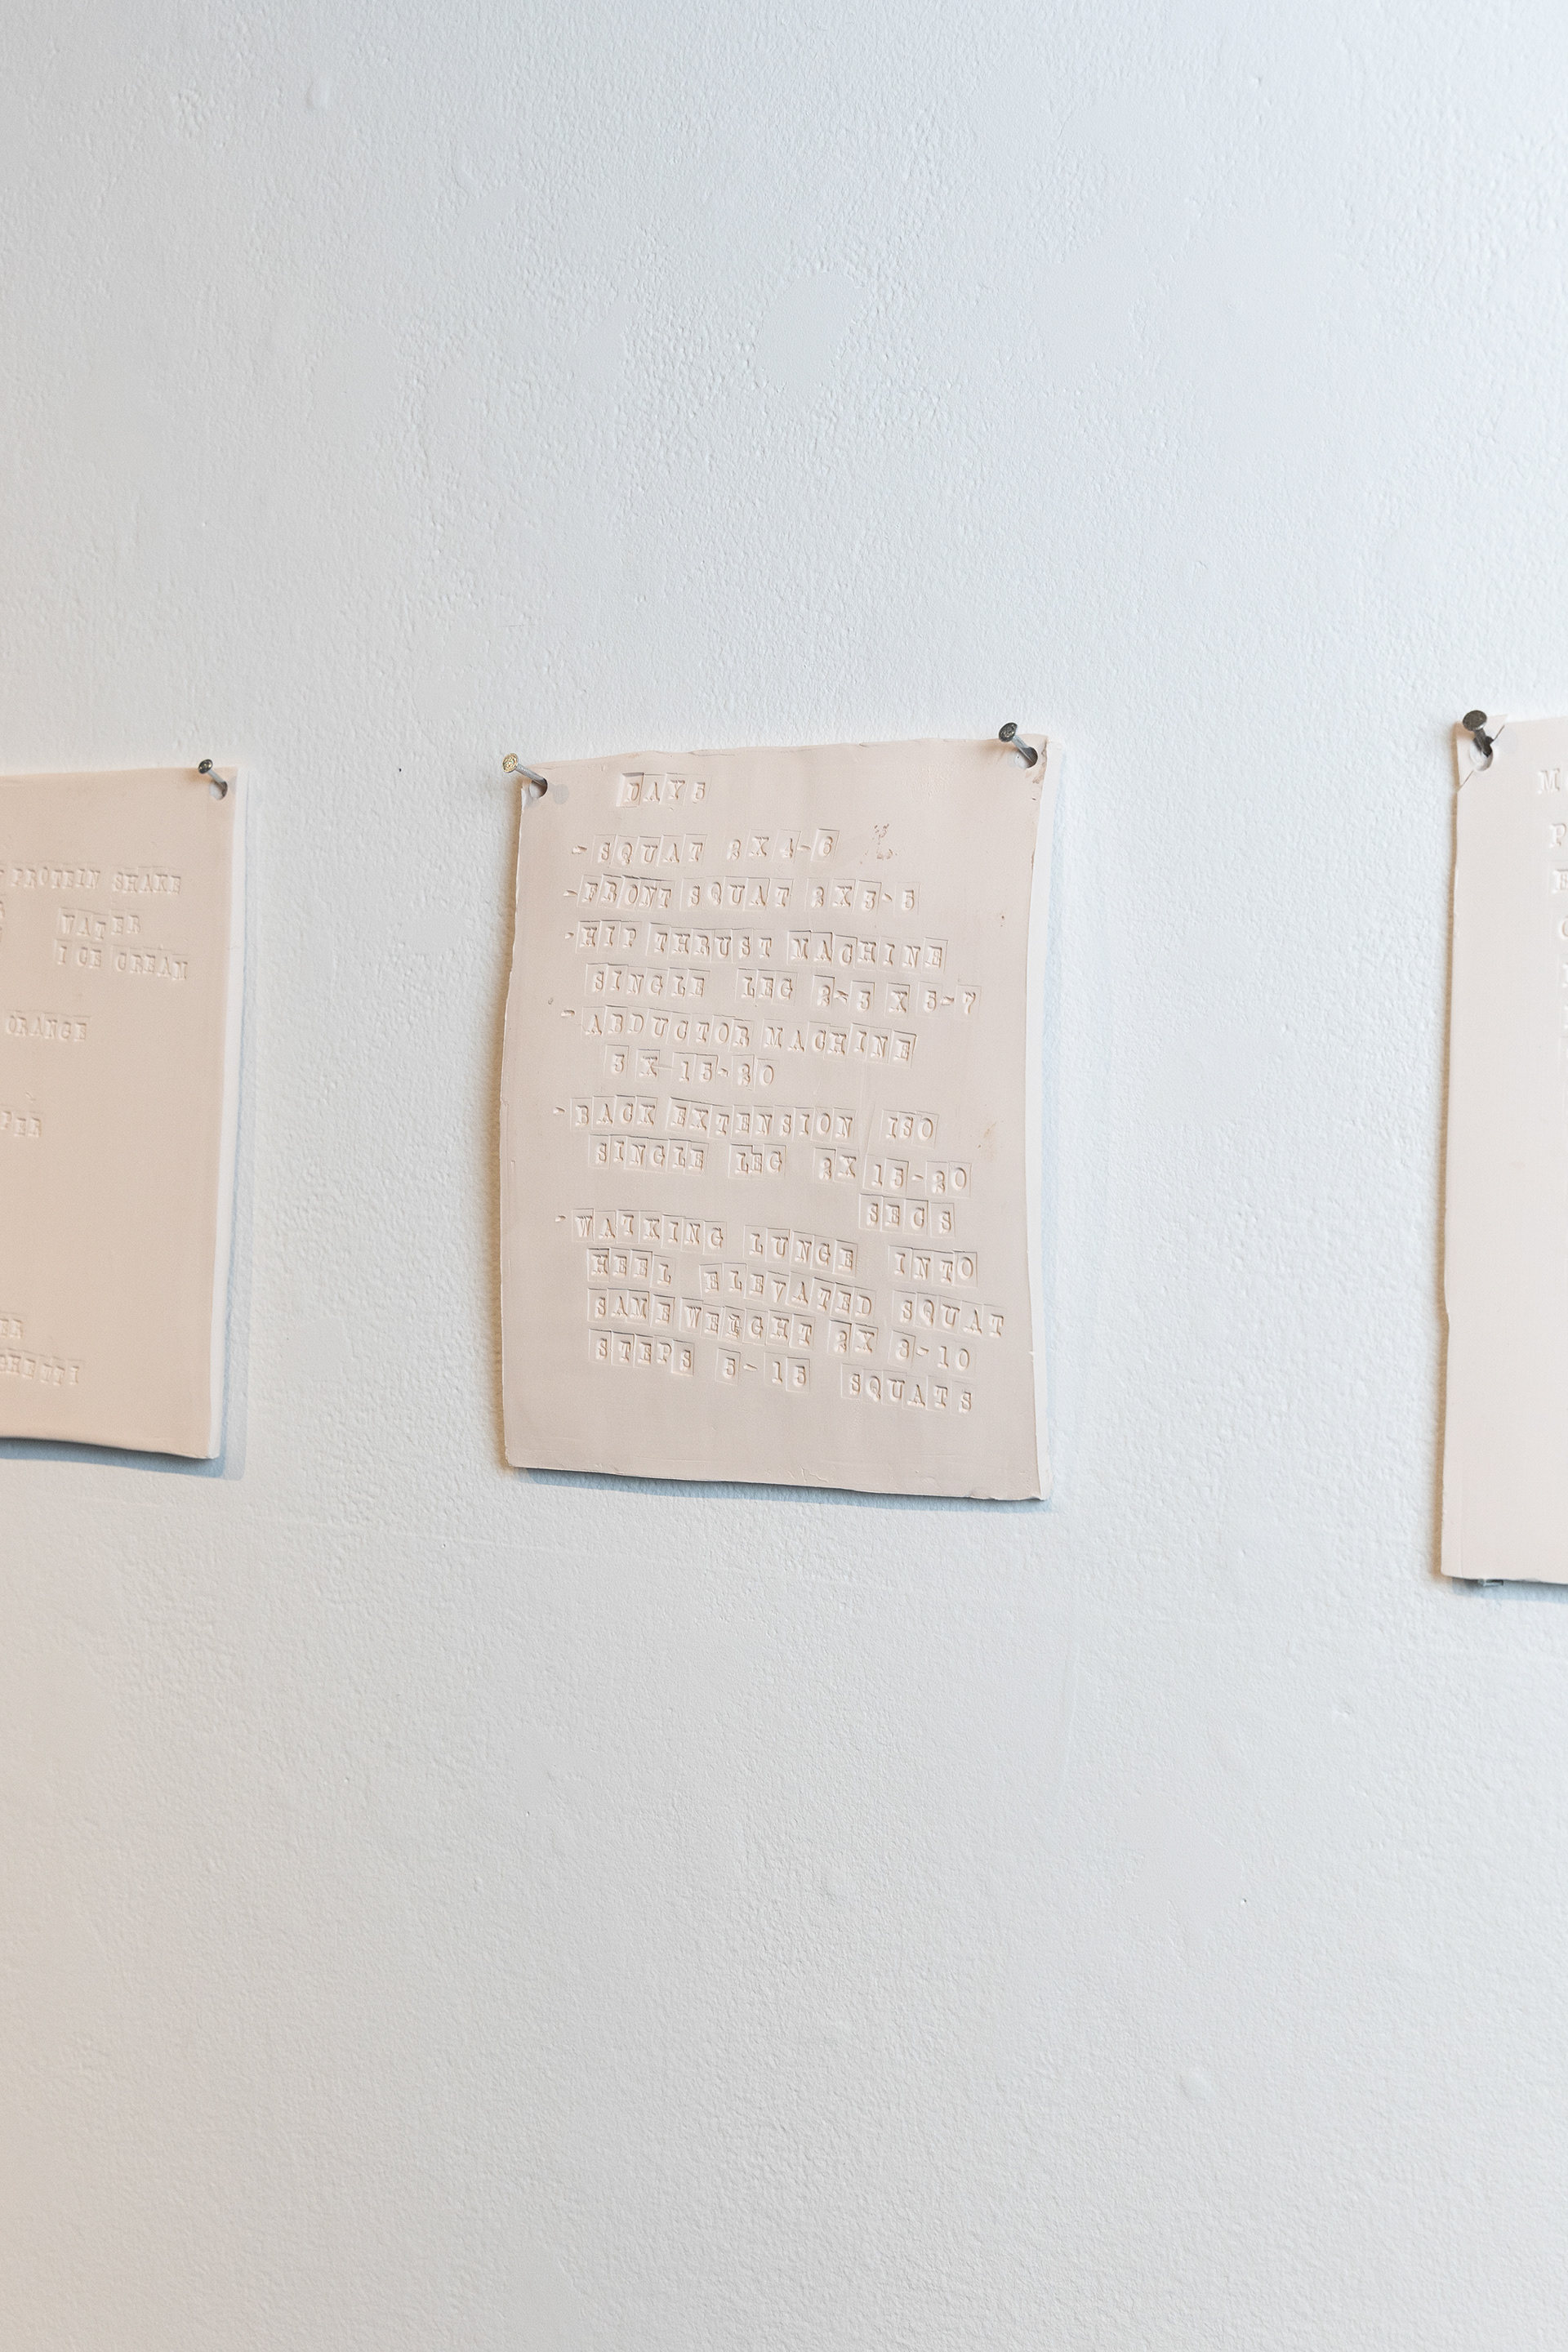 PROTEIN SHAKE
WATER
ICE CREAM
ORANGE
DAY 5
- SQUAT 2X4-6
- FRONT SQUAT 2X3-5
- HIP THRUST MACHINE
SINGLE LEG 2-3 X 5-7
- ABDUCTOR MACHINE
3 X 15-20
- BACK EXTENSION ISO
SINGLE LEG 2X 15-20
SECS
- WALKING LUNGE INTO
HEEL ELEVATED SQUAT
SAME WEIGHT 2X 8-10
STEPS 5-15 SQUATS